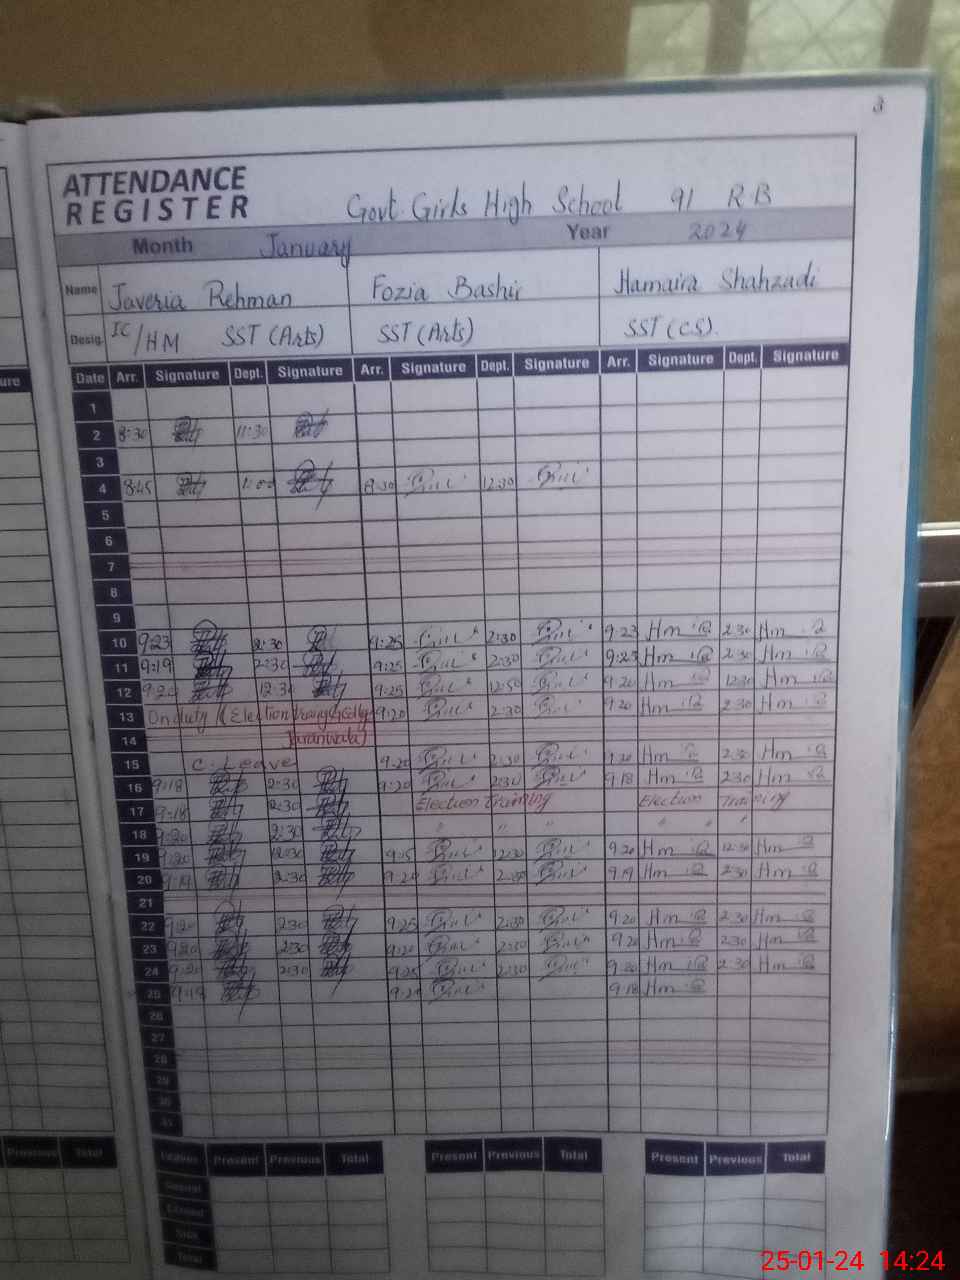 3
ATTENDANCE
REGISTER
Govt. Girls High School 91 R.B
Month January Year 2024
Name Javeria Rehman Fozia Bashir Hamaira Shahzadi
Desig. IC/HM SST (Arts) SST (Arts) SST (C.S).
ure Date Arr. Signature Dept. Signature Arr. Signature Dept. Signature Arr. Signature Dept. Signature
1
2 8:30 11:30
3
4 8:45 8:30 12:30
5
6
7
8
9
10 9:23 2:30 9:25 2:30 9:23 Hm 2:30 Hm
11 9:19 2:30 9:25 2:30 9:23 Hm 2:30 Hm
12 9:20 12:30 9:25 12:30 9:20 Hm 12:30 Hm
13 On duty (Election 9:20 2:30 9:20 Hm 2:30 Hm
14 Jaranwala)
15 C. Leave 9:20 2:30 9:20 Hm 2:30 Hm
16 9:18 2:30 9:20 2:30 9:18 Hm 2:30 Hm
17 9:18 2:30 Election Training Election Training
18 9:20 2:30 " " " " " "
19 9:20 12:30 9:15 12:30 9:20 Hm 12:30 Hm
20 9:19 2:30 9:20 2:30 9:19 Hm 2:30 Hm
21
22 9:20 2:30 9:25 2:30 9:20 Hm 2:30 Hm
23 9:20 2:30 9:20 2:30 9:20 Hm 2:30 Hm
24 9:20 2:30 9:25 2:30 9:20 Hm 2:30 Hm
25 9:18 9:20 9:18 Hm
26
27
28
29
30
31
Previous Total Leaves Present Previous Total Present Previous Total Present Previous Total
Casual
Earned
Sick
Total
25-01-24 14:24